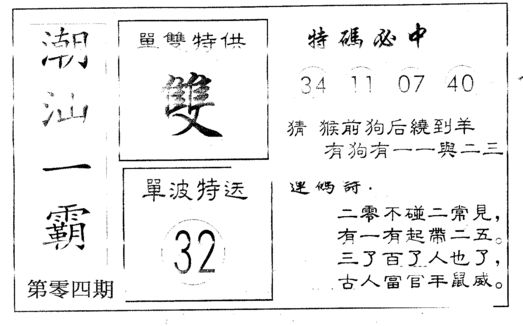 潮汕一霸
第零四期
單雙特供
雙
單波特送
32
特碼必中
34 11 07 40
猜 猴前狗后繞到羊
有狗有一一與二三
迷碼詩.
二零不碰二常見,
有一有起帶二五。
三了百了人也了,
古人富官羊鼠威。